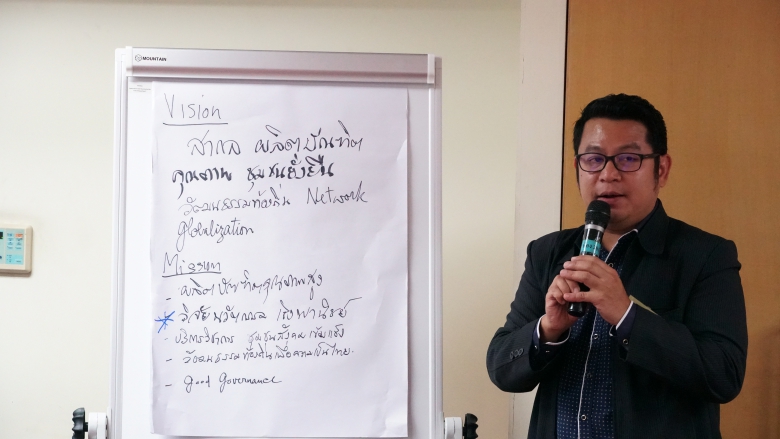 MOUNTAIN
Vision
สากล ผลิตบัณฑิต
คุณภาพ ชุมชนยั่งยืน
วัฒนธรรมท้องถิ่น Network
globalization
Mission
- ผลิตบัณฑิตคุณภาพสูง
วิจัยนวัตกรรม เชิงพาณิชย์
- บริการวิชาการ ชุมชนสังคมเข้มแข็ง
- วัฒนธรรมท้องถิ่นเพื่อความเป็นไทย
- good governance